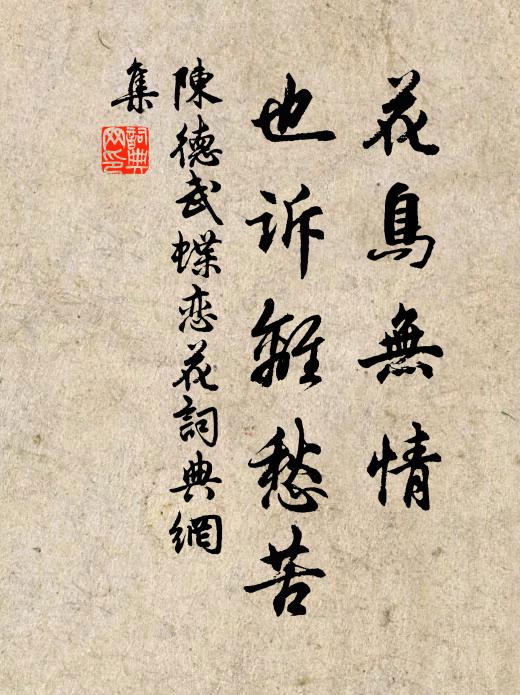 花鳥無情
也诉離愁苦
陳德武蝶恋花詞典網
集
詞典网印